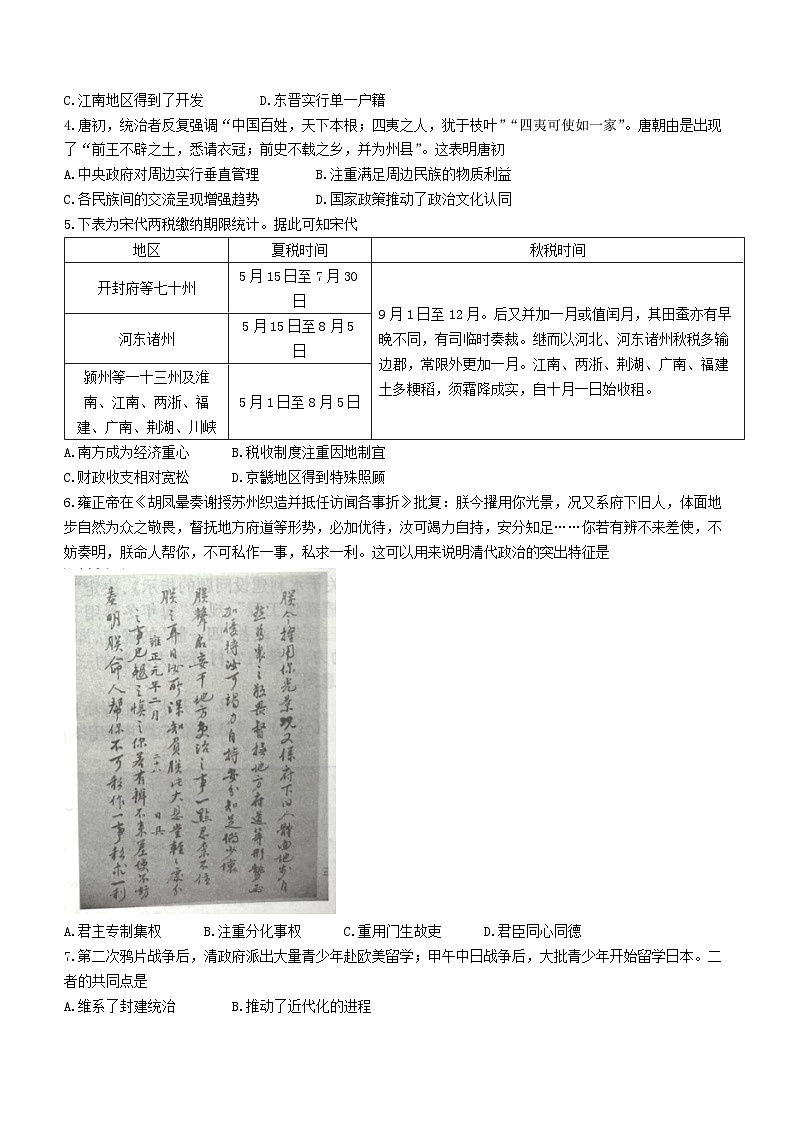 C.江南地区得到了开发 D.东晋实行单一户籍
4.唐初，统治者反复强调“中国百姓，天下本根；四夷之人，犹于枝叶”“四夷可使如一家”。唐朝由是出现
了“前王不辟之土，悉请衣冠；前史不载之乡，并为州县”。这表明唐初
A.中央政府对周边实行垂直管理 B.注重满足周边民族的物质利益
C.各民族间的交流呈现增强趋势 D.国家政策推动了政治文化认同
5.下表为宋代两税缴纳期限统计。据此可知宋代
地区 夏税时间 秋税时间
开封府等七十州
5月15日至7月30
日
河东诸州
5月15日至8月5
日
颍州等一十三州及淮
南、江南、两浙、福
建、广南、荆湖、川峡
5月1日至8月5日
9月1日至12月。后又并加一月或值闰月，其田蚕亦有早
晚不同，有司临时奏裁。继而以河北、河东诸州秋税多输
边郡，常限外更加一月。江南、两浙、荆湖、广南、福建
土多粳稻，须霜降成实，自十月一日始收租。
A.南方成为经济重心 B.税收制度注重因地制宜
C.财政收支相对宽松 D.京畿地区得到特殊照顾
6.雍正帝在《胡凤翚奏谢授苏州织造并抵任访闻各事折》批复：朕今擢用你光景，况又系府下旧人，体面地
步自然为众之敬畏，督抚地方府道等形势，必加优待，汝可竭力自持，安分知足……你若有辨不来差使，不
妨奏明，朕命人帮你，不可私作一事，私求一利。这可以用来说明清代政治的突出特征是
朕今擢用你光景况又系府下旧人体面地步自
然为众之敬畏督抚地方府道等形势必
加优待汝可竭力自持安分知足倘少坏
朕声名妄干地方吏治之事一点忍不住
朕之耳目必所深知负朕此大恩岂轻之处分
之事已继之慎之你若有辨不来差使不妨
雍正元年二月二十八日具
奏明朕命人帮你不可私作一事私求一利
A.君主专制集权 B.注重分化事权 C.重用门生故吏 D.君臣同心同德
7.第二次鸦片战争后，清政府派出大量青少年赴欧美留学；甲午中日战争后，大批青少年开始留学日本。二
者的共同点是
A.维系了封建统治 B.推动了近代化的进程